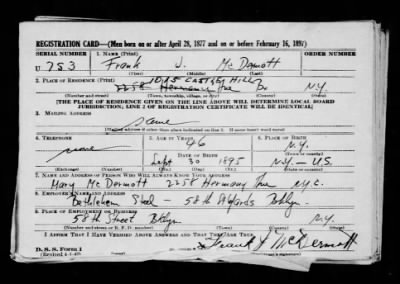 REGISTRATION CARD—(Men born on or after April 28, 1877 and on or before February 16, 1897)
SERIAL NUMBER 1. NAME (Print) ORDER NUMBER
U 753 Frank J. McDermott
(First) (Middle) (Last)
2. PLACE OF RESIDENCE (Print)
1015 Castle Hill
2258 Hermany Ave Bx N.Y.
(Number and street) (Town, township, village, or city) (County) (State)
[THE PLACE OF RESIDENCE GIVEN ON THE LINE ABOVE WILL DETERMINE LOCAL BOARD
JURISDICTION; LINE 2 OF REGISTRATION CERTIFICATE WILL BE IDENTICAL]
3. MAILING ADDRESS
same
[Mailing address if other than place indicated on line 2. If same insert word same]
4. TELEPHONE 5. AGE IN YEARS 6. PLACE OF BIRTH
none 46 N.Y.
DATE OF BIRTH
Sept 30 1895 N.Y. — U.S.
7. NAME AND ADDRESS OF PERSON WHO WILL ALWAYS KNOW YOUR ADDRESS
Mary McDermott 2258 Hermany Ave N.Y.C.
8. EMPLOYER'S NAME AND ADDRESS
Bethlehem Steel — 58th St Yards Bklyn.
9. PLACE OF EMPLOYMENT OR BUSINESS
58th Street Bklyn N.Y.
(Number and street or R. F. D. number) (Town) (County) (State)
I AFFIRM THAT I HAVE VERIFIED ABOVE ANSWERS AND THAT THEY ARE TRUE.
D. S. S. Form 1 Frank J McDermott